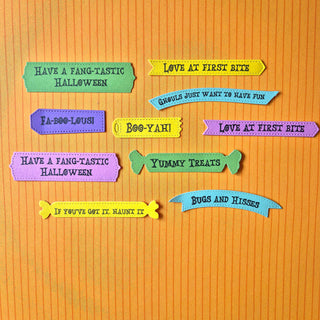 Have a fang-tastic
Halloween
Love at first bite
Ghouls just want to have fun
Fa-boo-lous!
Boo-yah!
Love at first bite
Have a fang-tastic
Halloween
Yummy Treats
Bugs and Hisses
If you've got it, haunt it